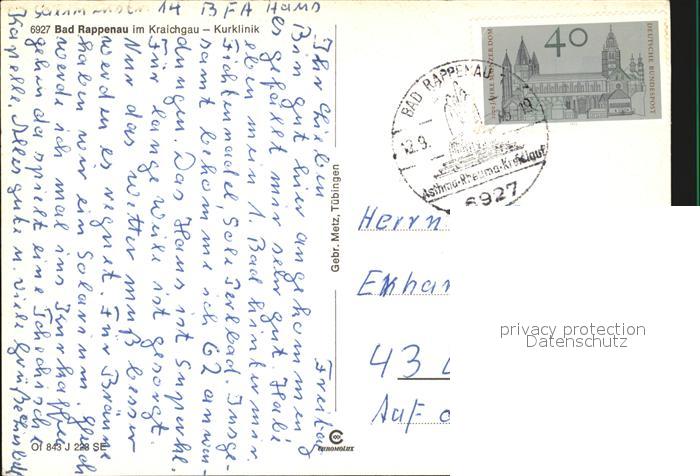 14 BFA Haus
6927 Bad Rappenau im Kraichgau – Kurklinik
Freitag
Ihr Lieben
Bin gut hier angekommen
es gefällt mir sehr gut. Habe
eben mein 1. Bad hinter mir
Fichtennadel, Sole Perlbad. Insge-
samt bekomme ich 62 anwen-
dungen. Das Haus ist Superkl.
Für lange weile ist gesorgt.
Nur das wetter muß besser
werden es regnet. Für Bräune
haben wir ein Solarium. gleich
werde ich mal ins Kurkaffee
gehen da spielt eine Tschechische
Kapelle. Alles gute u. viele Grüße
Gebr. Metz, Tübingen
Of 843 J 228 SE
CHROMOLUX
JAHRE MAINZER DOM
40
DEUTSCHE BUNDESPOST
BAD RAPPENAU
12.9.
Asthma-Rheuma-Kreislauf
6927
Herrn
Ekhar
43
Auf
privacy protection
Datenschutz